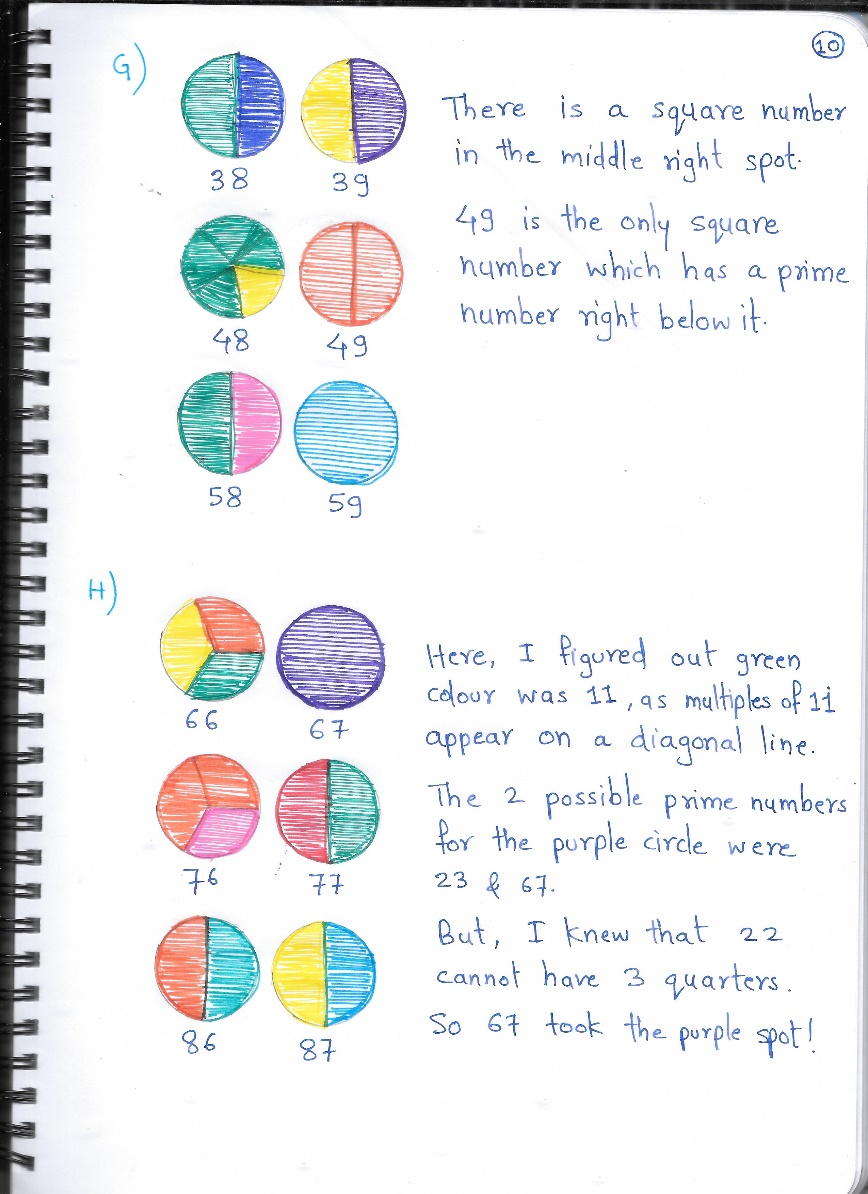 10
G)
38 39
There is a square number
in the middle right spot.
48 49
49 is the only square
number which has a prime
number right below it.
58 59
H)
66 67
Here, I figured out green
colour was 11, as multiples of 11
appear on a diagonal line.
76 77
The 2 possible prime numbers
for the purple circle were
23 & 67.
86 87
But, I knew that 22
cannot have 3 quarters.
So 67 took the purple spot!